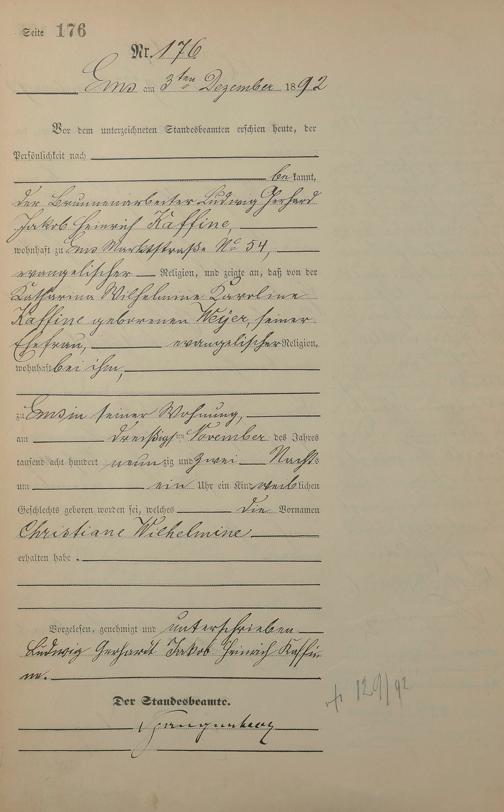 Seite 176
Nr. 176
Ems am 3ten Dezember 1892
Vor dem unterzeichneten Standesbeamten erschien heute, der
Persönlichkeit nach
bekannt,
der Brunnenarbeiter Ludwig Gerhard
Jakob Heinrich Kaffine,
wohnhaft zu Ems Marktstraße No 54,
evangelischer Religion, und zeigte an, daß von der
Katharina Wilhelmine Karoline
Kaffine geborenen Weyer, seiner
Ehefrau, evangelischer Religion,
wohnhaft bei ihm,
zu Ems in seiner Wohnung,
am dreißigsten November des Jahres
tausend acht hundert neunzig und zwei Nachts
um ein Uhr ein Kind weiblichen
Geschlechts geboren worden sei, welches die Vornamen
Christiane Wilhelmine
erhalten habe.
Vorgelesen, genehmigt und unterschrieben
Ludwig Gerhardt Jakob Heinrich Kaffi-
ne.
Der Standesbeamte.
129/92